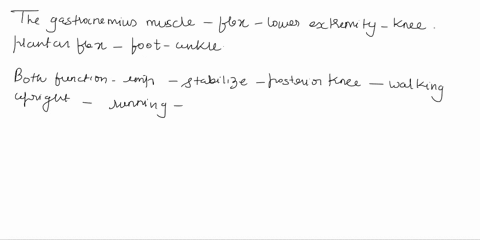 The gastrocnemius muscle - flex - lower extremity - knee.
plantar flex - foot - ankle
Both function - imp - stabilize - posterior knee - walking
upright - running -